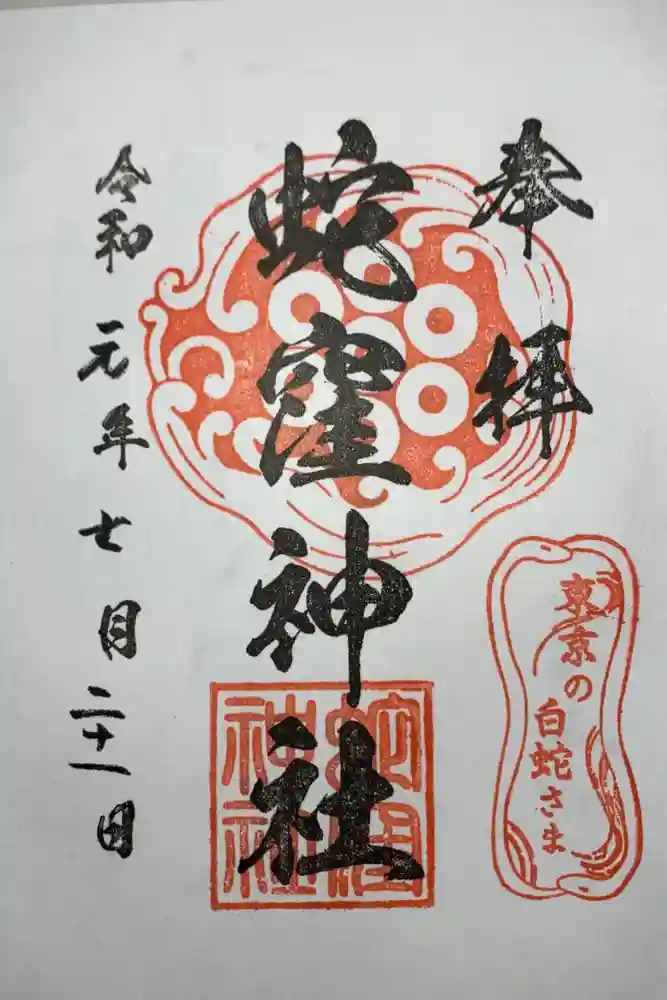 奉拝
蛇窪神社
令和元年七月二十一日
東京の
白蛇さま